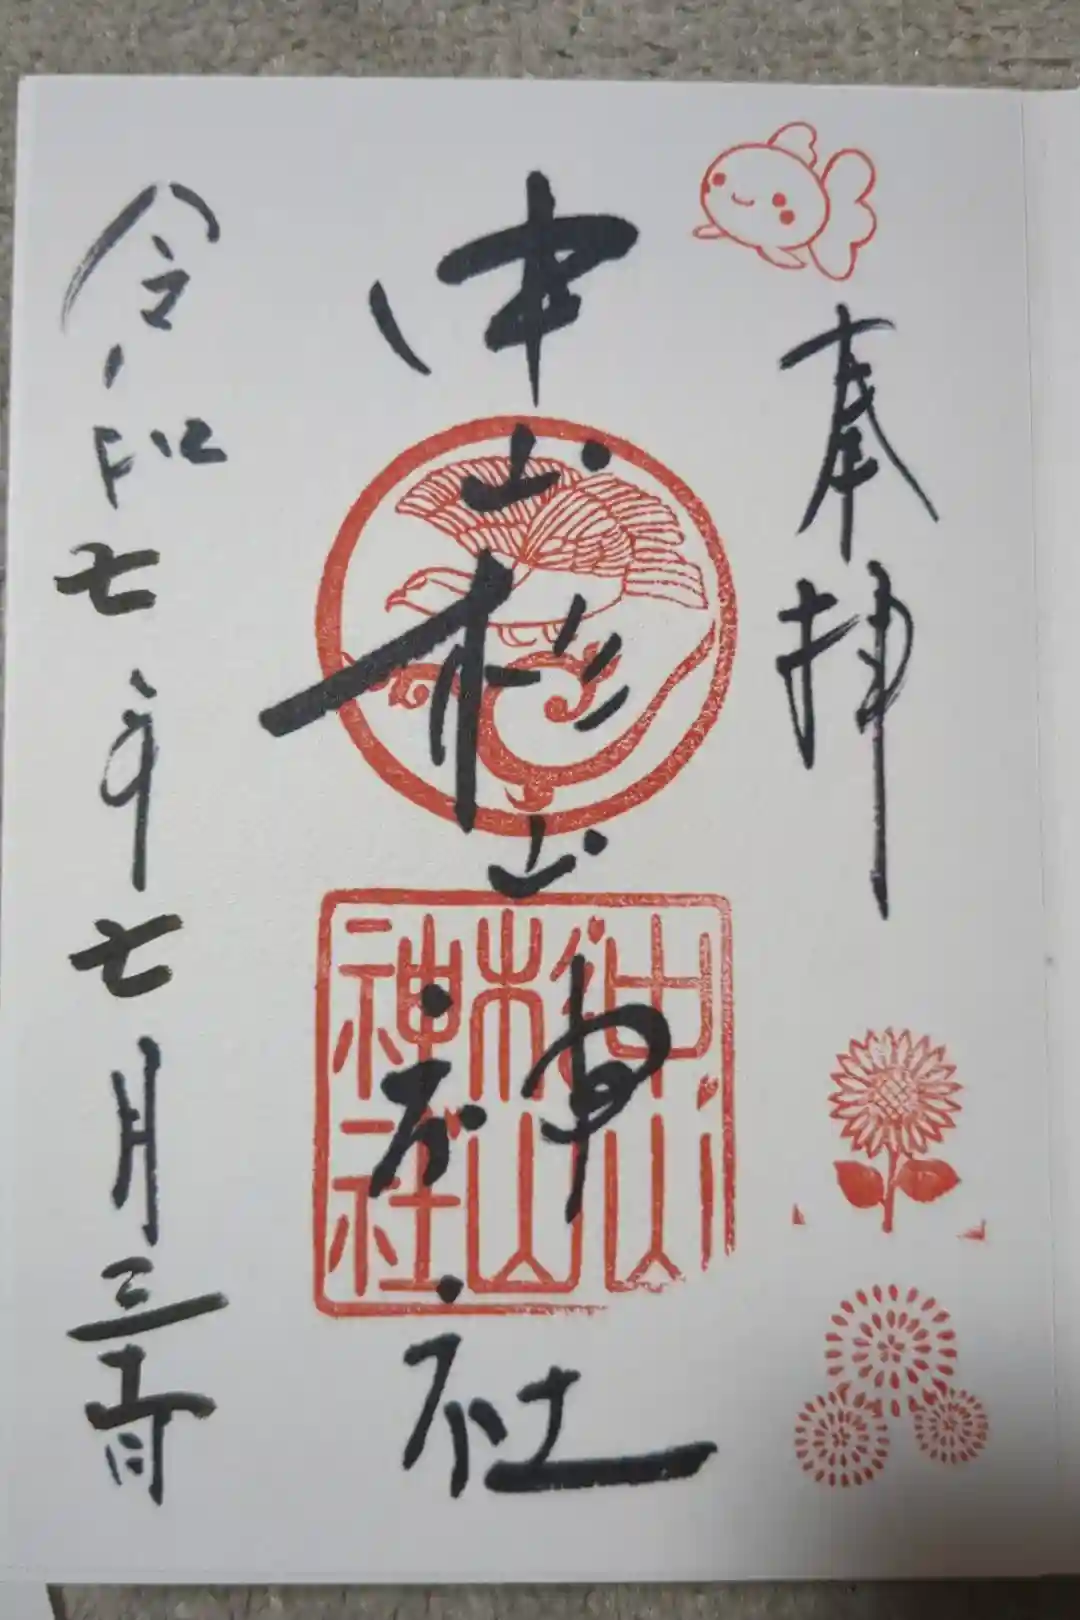 奉拝
中山杉山神社
中山
杉山
神社
令和七年七月三十一日